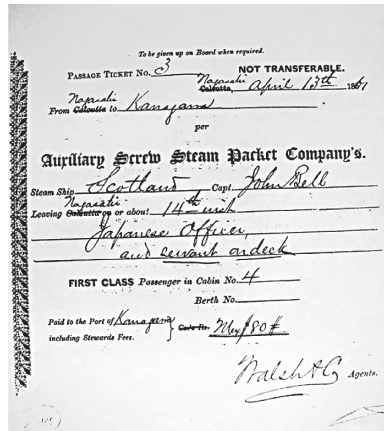 To be given up on Board when required.
PASSAGE TICKET No. 3 NOT TRANSFERABLE.
Nagasaki
Calcutta, April 13th 1861
Nagasaki
From Calcutta to Kanagawa
per
Auxiliary Screw Steam Packet Company's.
Steam Ship Scotland Capt. John Bell
Nagasaki
Leaving Calcutta on or about 14th inst
Japanese Officer,
and servant on deck
FIRST CLASS Passenger in Cabin No. 4
Berth No.
Paid to the Port of Kanagawa
including Stewards Fees.
Mex $ 80
Walsh & Co Agents.